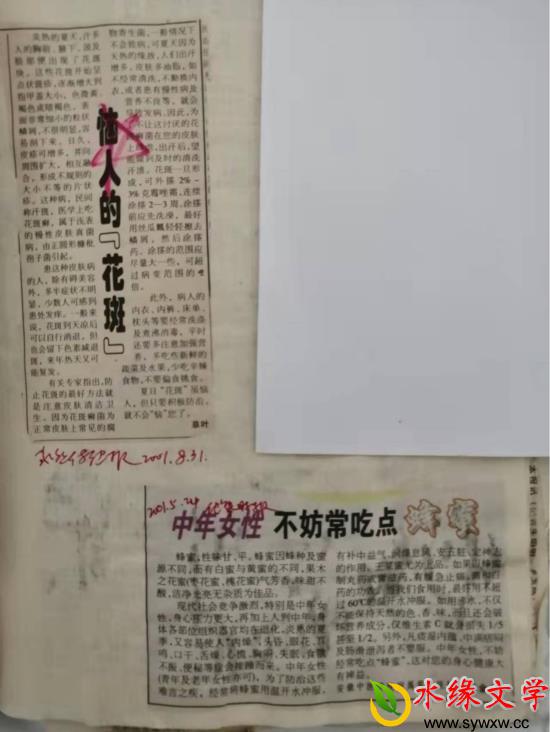 恼人的『花斑』
炎热的夏天,许多
人的胸前、腋下、颈及
脸部便出现了花斑
块。这些花斑开始呈
点状斑疹,逐渐增大到
指甲盖大小,色微黄、
褐色或暗褐色,表
面非常细小的粒状
鳞屑,不很明显,容
易刮下来。日久,
皮疹可增多,并向
周围扩大,相互融
合,形成不规则的
大小不等的片状
疹。这种病,民间
称汗斑,医学上吃
花斑癣,属于浅表
的慢性皮肤真菌
病,由正圆形糠秕
孢子菌引起。
患这种皮肤病
的人,除有碍美容
外,多半症状不明
显,少数人可感到
患处发痒。一般来
说,花斑到天凉后
可以自行消退,但
也会留下色素减退
斑,来年热天又可
能复发。
有关专家指出,防
止花斑的最好方法就
是注意皮肤清洁卫
生。因为花斑癣菌为
正常皮肤上常见的腐
物寄生菌,一般情况下
不会致病,可夏天因为
天热的缘故,人们出汗
增多,皮肤多油脂,如
不经常清洗,不勤换内
衣,或者患有慢性病及
营养不良等,就会
导致发病。因此,为
不让这讨厌的花
斑癣菌在您的皮肤
上,出汗后,望
能得到及时的清洗
汗渍。花斑一旦形
成,可外搽2%-
3%克霉唑霜,连续
涂搽2-3周。涂搽
前应先洗澡,最好
用丝瓜瓤轻轻擦去
鳞屑,然后涂搽
药。涂搽的范围应
尽量大一些,可超
过病变范围的一
倍。
此外,病人的
内衣、内裤、床单、
枕头等要经常洗涤
及煮沸消毒。平时
还要多注意加强营
养,多吃些新鲜的
蔬菜及水果,少吃辛辣
食物,不要偏食挑食。
夏日“花斑”虽恼
人,但只要积极防治,
就不会“恼”您了。
草叶
2001.8.31.
2001.5.24
中年女性 不妨常吃点 蜂蜜
蜂蜜,性味甘、平。蜂蜜因蜂种及蜜
源不同,而有白蜜与黄蜜的不同,果木
之花蜜(枣花蜜、槐花蜜)气芳香,味甜不
酸,洁净光亮无杂质为佳品。
现代社会竞争激烈,特别是中年女
性,身心压力更大,再加上人到中年,身
体各部位组织器官均在退化,炎热的夏
季,又容易使人“内燥”,头昏、眼花、耳
鸣、口干、舌燥、心慌、胸闷、失眠、食欲
不振、便秘等症会接踵而来。中年女性
(青年及老年女性亦可),为了防治这些
难言之疾,经常将蜂蜜用温开水冲服,
有补中益气、润燥息风、安五脏、定神志
的作用。王桨蜜尤为上品。如果以蜂蜜
制丸药或膏滋药,有缓急止痛、调和百
药的功效。当我们食用时,最好用不超
过60℃的温开水冲服。如用沸水,不仅
不能保持天然的色、香、味,而且还会破
坏营养成分,仅维生素C就会损失1/5
甚至1/2。另外,凡痰湿内蕴、中满痞闷
及肠滑泄泻者不要服。中年女性,不妨
经常吃点“蜂蜜”,这对您的身心健康大
有裨益。
水缘文学
www.sywxw.cc